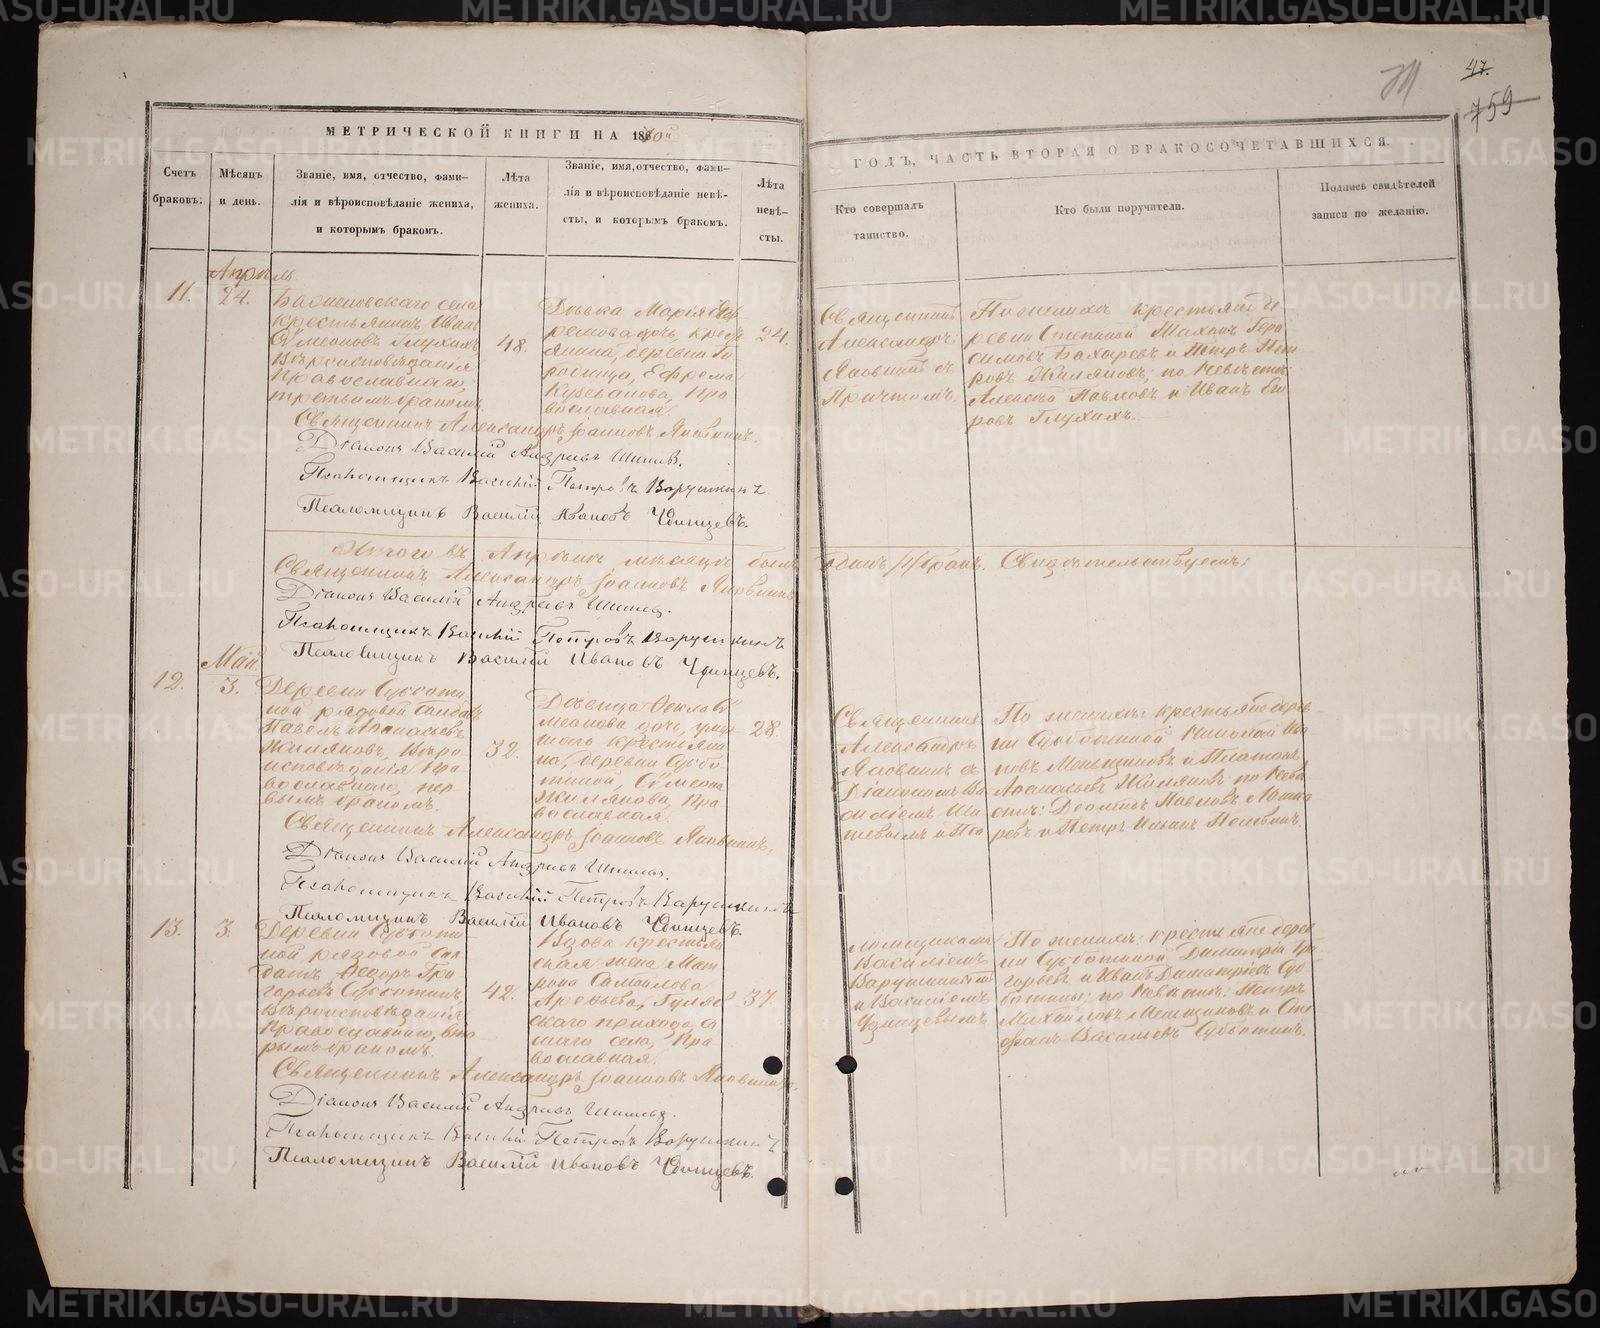 47.
759
МЕТРИЧЕСКОЙ КНИГИ НА 18
ГОДЪ, ЧАСТЬ ВТОРАЯ О БРАКОСОЧЕТАВШИХСЯ.
Счетъ браковъ.
Мѣсяцъ и день.
Званіе, имя, отчество, фами-
лія и вѣроисповѣданіе жениха,
и которымъ бракомъ.
Лѣта жениха.
Званіе, имя, отчество, фами-
лія и вѣроисповѣданіе невѣ-
сты, и которымъ бракомъ.
Лѣта невѣ-
сты.
Кто совершалъ
таинство.
Кто были поручители.
Подпись свидѣтелей
записи по желанію.
Апрѣль
11.
24.
села
крестьянинъ Иванъ
Сѵмеоновъ Глухихъ
Вѣроисповѣданія
Православнаго,
третьимъ бракомъ
48.
Дѣвка Марія Еф-
ремова дочь, крест
янина, деревни
Ефрема
Пра
вославная
24.
Священникъ
Александръ
Яковкинъ съ
Причтомъ.
По женихѣ крестьяне де
ревни
симовъ Бахаревъ и Петръ Пет
ровъ Жиляковъ; по невѣстѣ:
Алексѣй Павловъ и Иванъ Его
ровъ Глухихъ.
Священникъ Александръ Іоанновъ Яковкинъ.
Діаконъ Василій Андреевъ
Псаломщикъ Василій Петровъ Варушкинъ
Псаломщикъ Василій Ивановъ
Итого въ Апрѣлѣ мѣсяцѣ былъ одинъ /1/ бракъ. Свидѣтельствуемъ:
Священникъ Александръ Іоанновъ Яковкинъ
Діаконъ Василій Андреевъ
Псаломщикъ Василій Петровъ Варушкинъ
Псаломщикъ Василій Ивановъ
Май
12.
3.
Деревни Субботи
ной рядовой солдатъ
Павелъ Афанасьевъ
Жиляковъ, Вѣро
исповѣданія Пра
вославнаго, пер
вымъ бракомъ.
32.
Дѣвица Ѳекла Сѵ
меонова дочь, умер
шаго крестьяни
на, деревни Суббо
тиной, Сѵмеона
Жилякова, Пра
вославная.
28.
Священникъ
Александръ
Яковкинъ съ
Діакономъ Ва
силіемъ Ши
шевымъ и Пса
По женихѣ: крестьяне дерев
ни Субботиной Николай Ива
новъ Меньщиковъ и Платонъ
Афанасьевъ Жиляковъ по невѣ
стѣ: Павловъ
ревъ и Петръ
Священникъ Александръ Іоанновъ Яковкинъ.
Діаконъ Василій Андреевъ
Псаломщикъ Василій Петровъ Варушкинъ
Псаломщикъ Василій Ивановъ
13.
3.
Деревни Субботи
ной рядовой сол
датъ Ѳедоръ Гри
горьевъ Субботинъ,
Вѣроисповѣданія
Православнаго, вто
рымъ бракомъ.
42.
Вдова крестьян
ская жена Мат
рона Самойлова
Арефьева,
скаго прихода,
села, Пра
вославная.
37.
ломщиками
Василіемъ
Варушкинымъ
и Василіемъ
По женихѣ: крестьяне дерев
ни Субботиной Димитрій Гри
горьевъ и Иванъ Димитріевъ Суб
ботины; по невѣстѣ: Петръ
Михайловъ Меньщиковъ и Сте
фанъ Васильевъ Субботинъ.
Священникъ Александръ Іоанновъ Яковкинъ.
Діаконъ Василій Андреевъ
Псаломщикъ Василій Петровъ Варушкинъ
Псаломщикъ Василій Ивановъ
METRIKI.GASO-URAL.RU